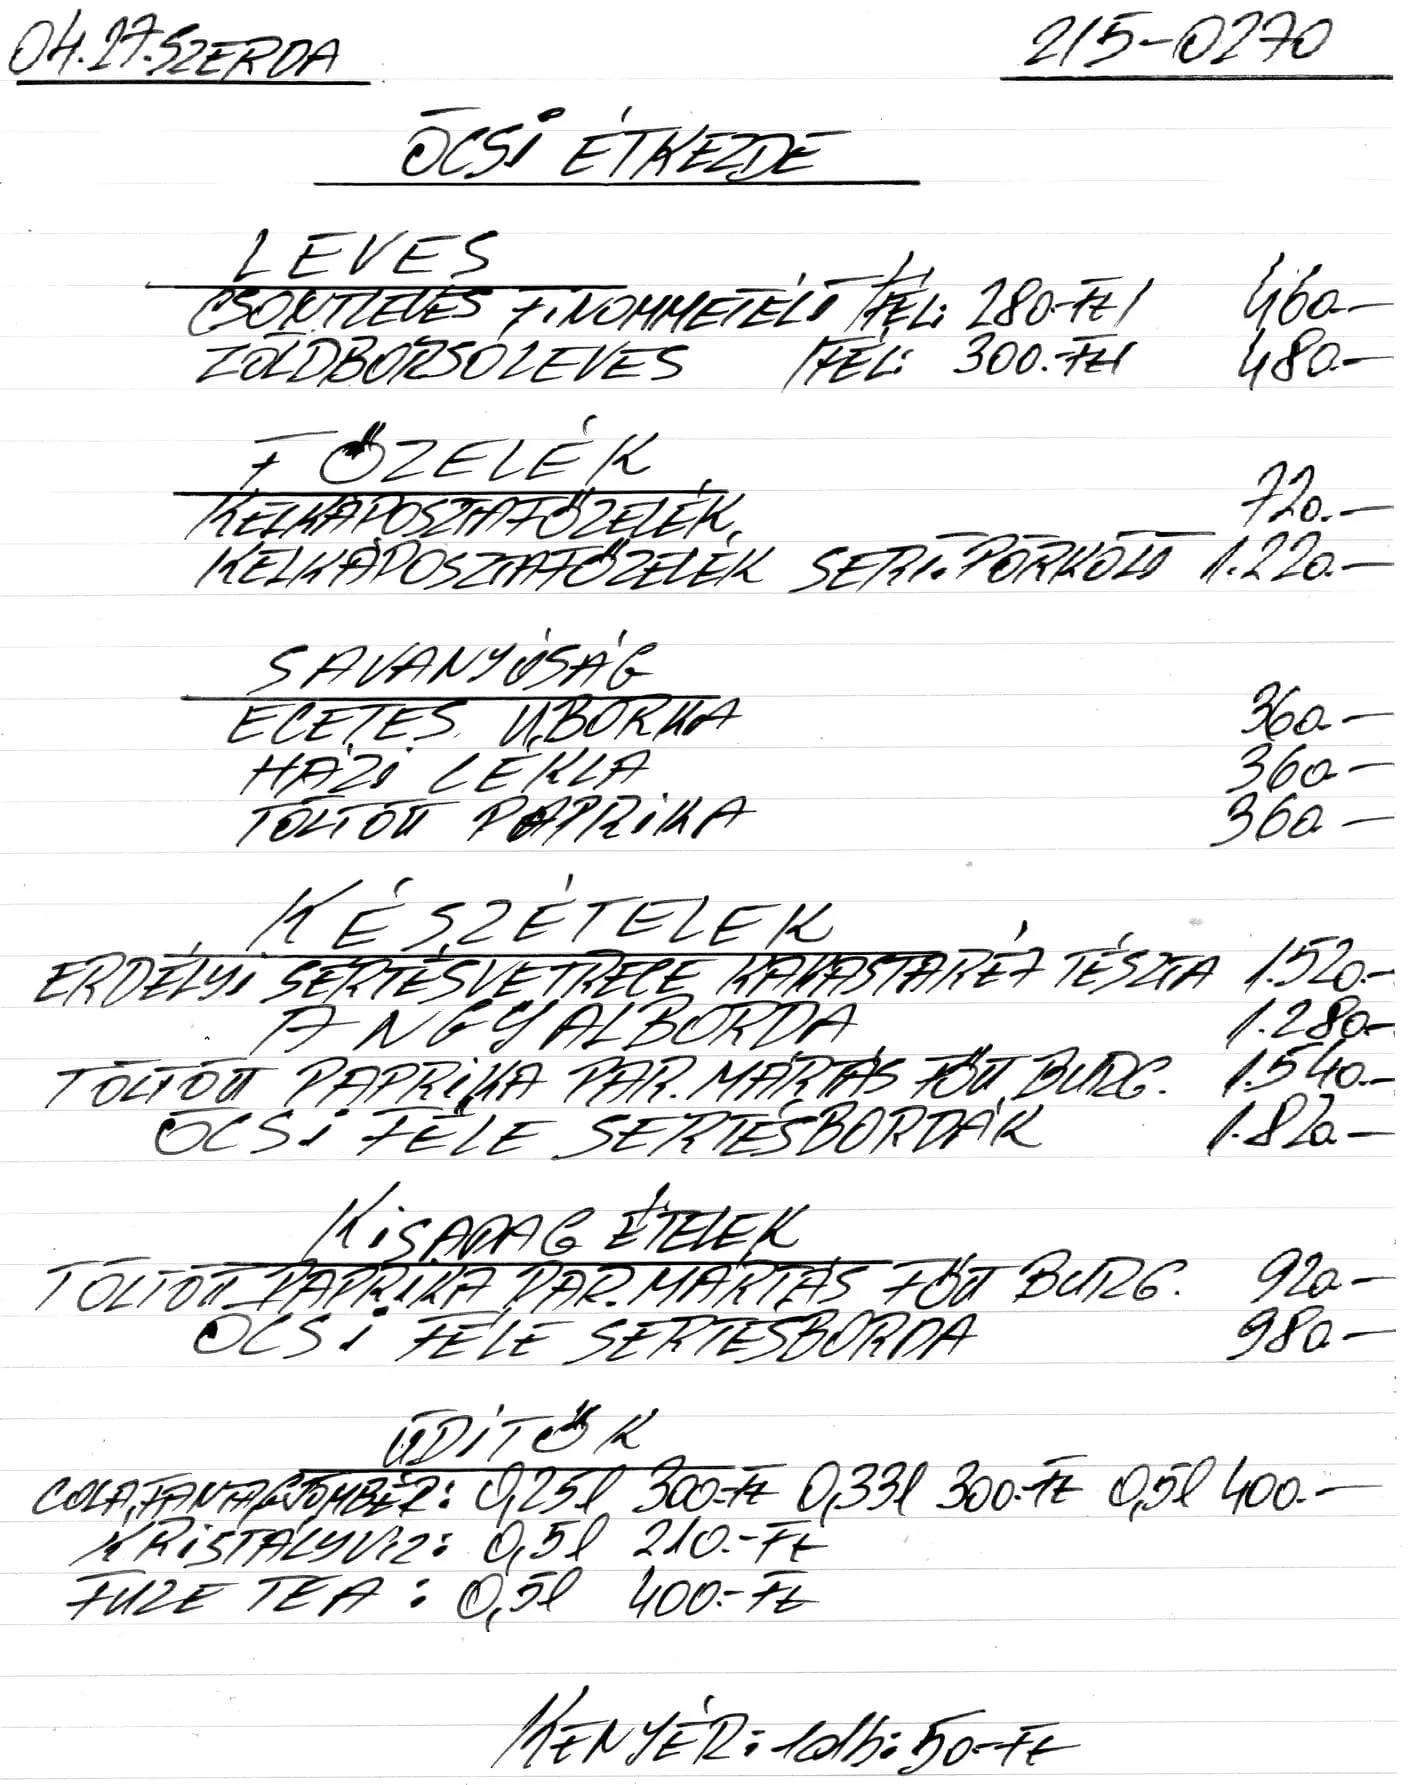 04.27. SZERDA
215-0270
ÖCSI ÉTKEZDE
LEVES
CSONTLEVES FINOMMETÉLT /FÉL: 280.-Ft/ 460.-
ZÖLDBORSÓLEVES /FÉL: 300.-Ft/ 480.-
FŐZELÉK
KELKÁPOSZTAFŐZELÉK 720.-
KELKÁPOSZTAFŐZELÉK SERT.PÖRKÖLT 1.220.-
SAVANYÚSÁG
ECETES UBORKA 360.-
HÁZI CÉKLA 360.-
TÖLTÖTT PAPRIKA 360.-
KÉSZÉTELEK
ERDÉLYI SERTÉSVETRECE KAKASTARÉJ TÉSZTA 1.520.-
ANGYALBORDA 1.280.-
TÖLTÖTT PAPRIKA PAR.MÁRTÁS FŐTT BURG. 1.540.-
ÖCSI FÉLE SERTÉSBORDÁK 1.820.-
KISADAG ÉTELEK
TÖLTÖTT PAPRIKA PAR.MÁRTÁS FŐTT BURG. 920.-
ÖCSI FÉLE SERTÉSBORDA 980.-
ÜDÍTŐK
COLA, FANTA, GYÖMBÉR: 0,25l 300.-Ft 0,33l 300.-Ft 0,5l 400.-
KRISTÁLYVIZ: 0,5l 210.-Ft
FUZE TEA: 0,5l 400.-Ft
KENYÉR: 1db: 50.-Ft